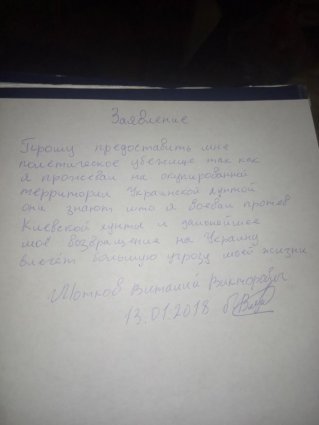 Заявление
Прошу предоставить мне
политическое убежище так как
я проживал на окупированной
территории Украинской хунтой
они знают што я воевал против
Киевской хунты и дальнейшее
моё возвращение на Украину
влечёт большую угрозу моей жизни
Виталий Викторович
13.01.2018